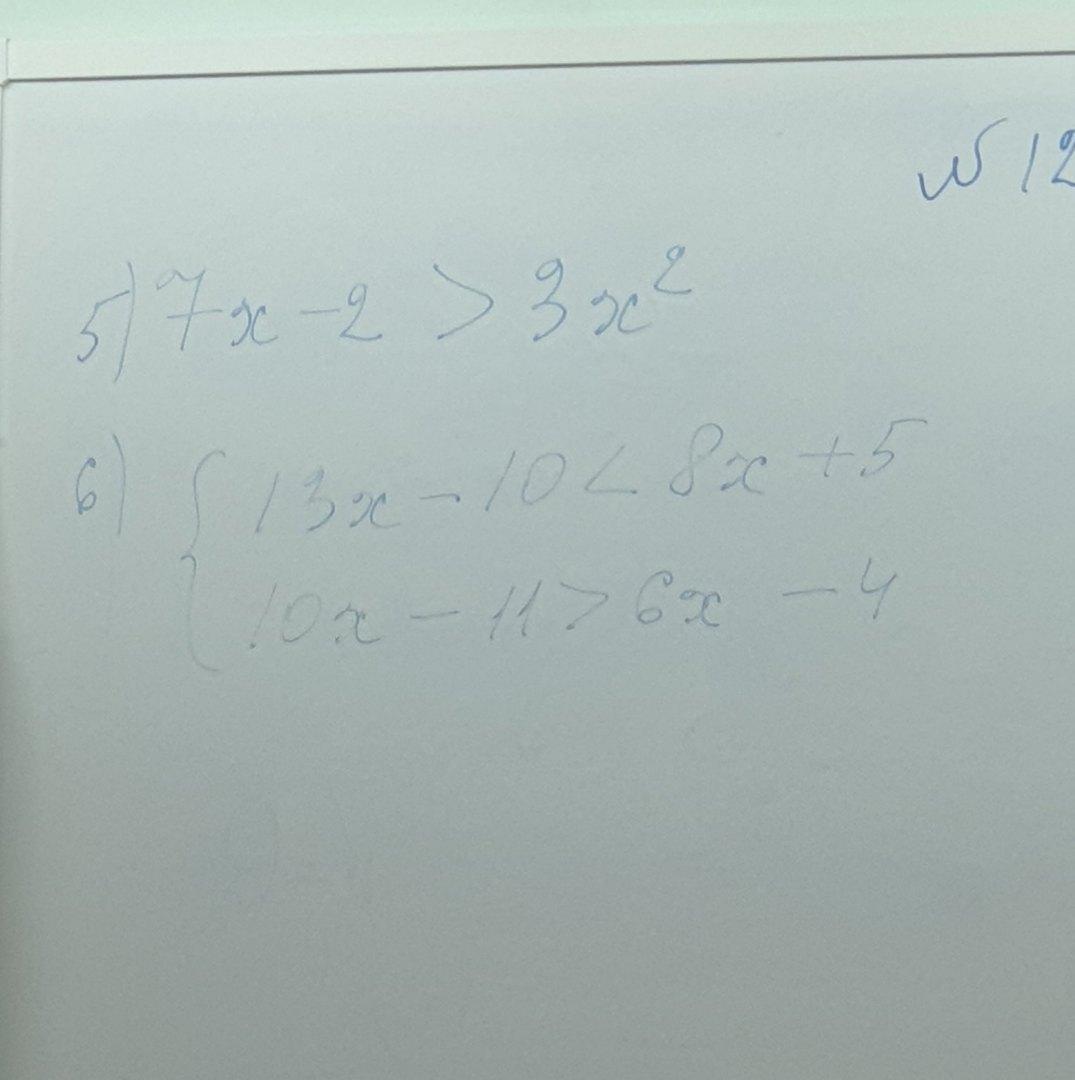 № 12
5) 7x - 2 > 3x²
6) { 13x - 10 < 8x + 5
10x - 11 > 6x - 4